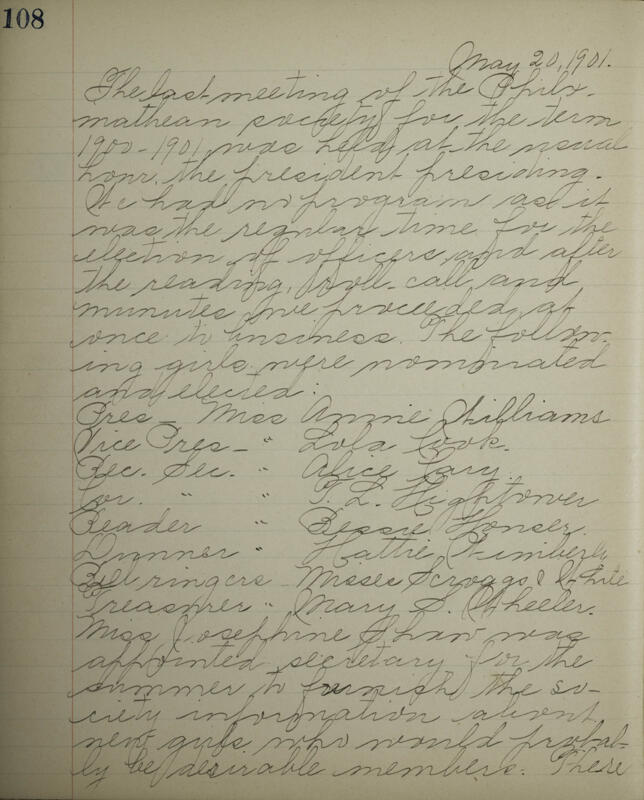 108
May 20, 1901.
The last meeting of the Philo-
mathean society for the term
1900-1901, was held at the usual
hour, the president presiding.
We had no program as it
was the regular time for the
election of officers, and after
the reading, roll-call, and
minutes, we proceeded at
once to business. The follow-
ing girls were nominated
and elected:
Pres - Miss Annie Williams
Vice Pres - " Lola Cook.
Rec. Sec. " Alice Lary
Cor. " " P. L. Hightower
Reader " Bessie Houser
Dunner " Hattie Wimberly
Bell ringers Misses Scroggs & White
Treasurer " Mary S. Wheeler.
Miss Josephine Shaw was
appointed secretary for the
summer to furnish the so-
ciety information about
new girls who would probab-
ly be desirable members. These